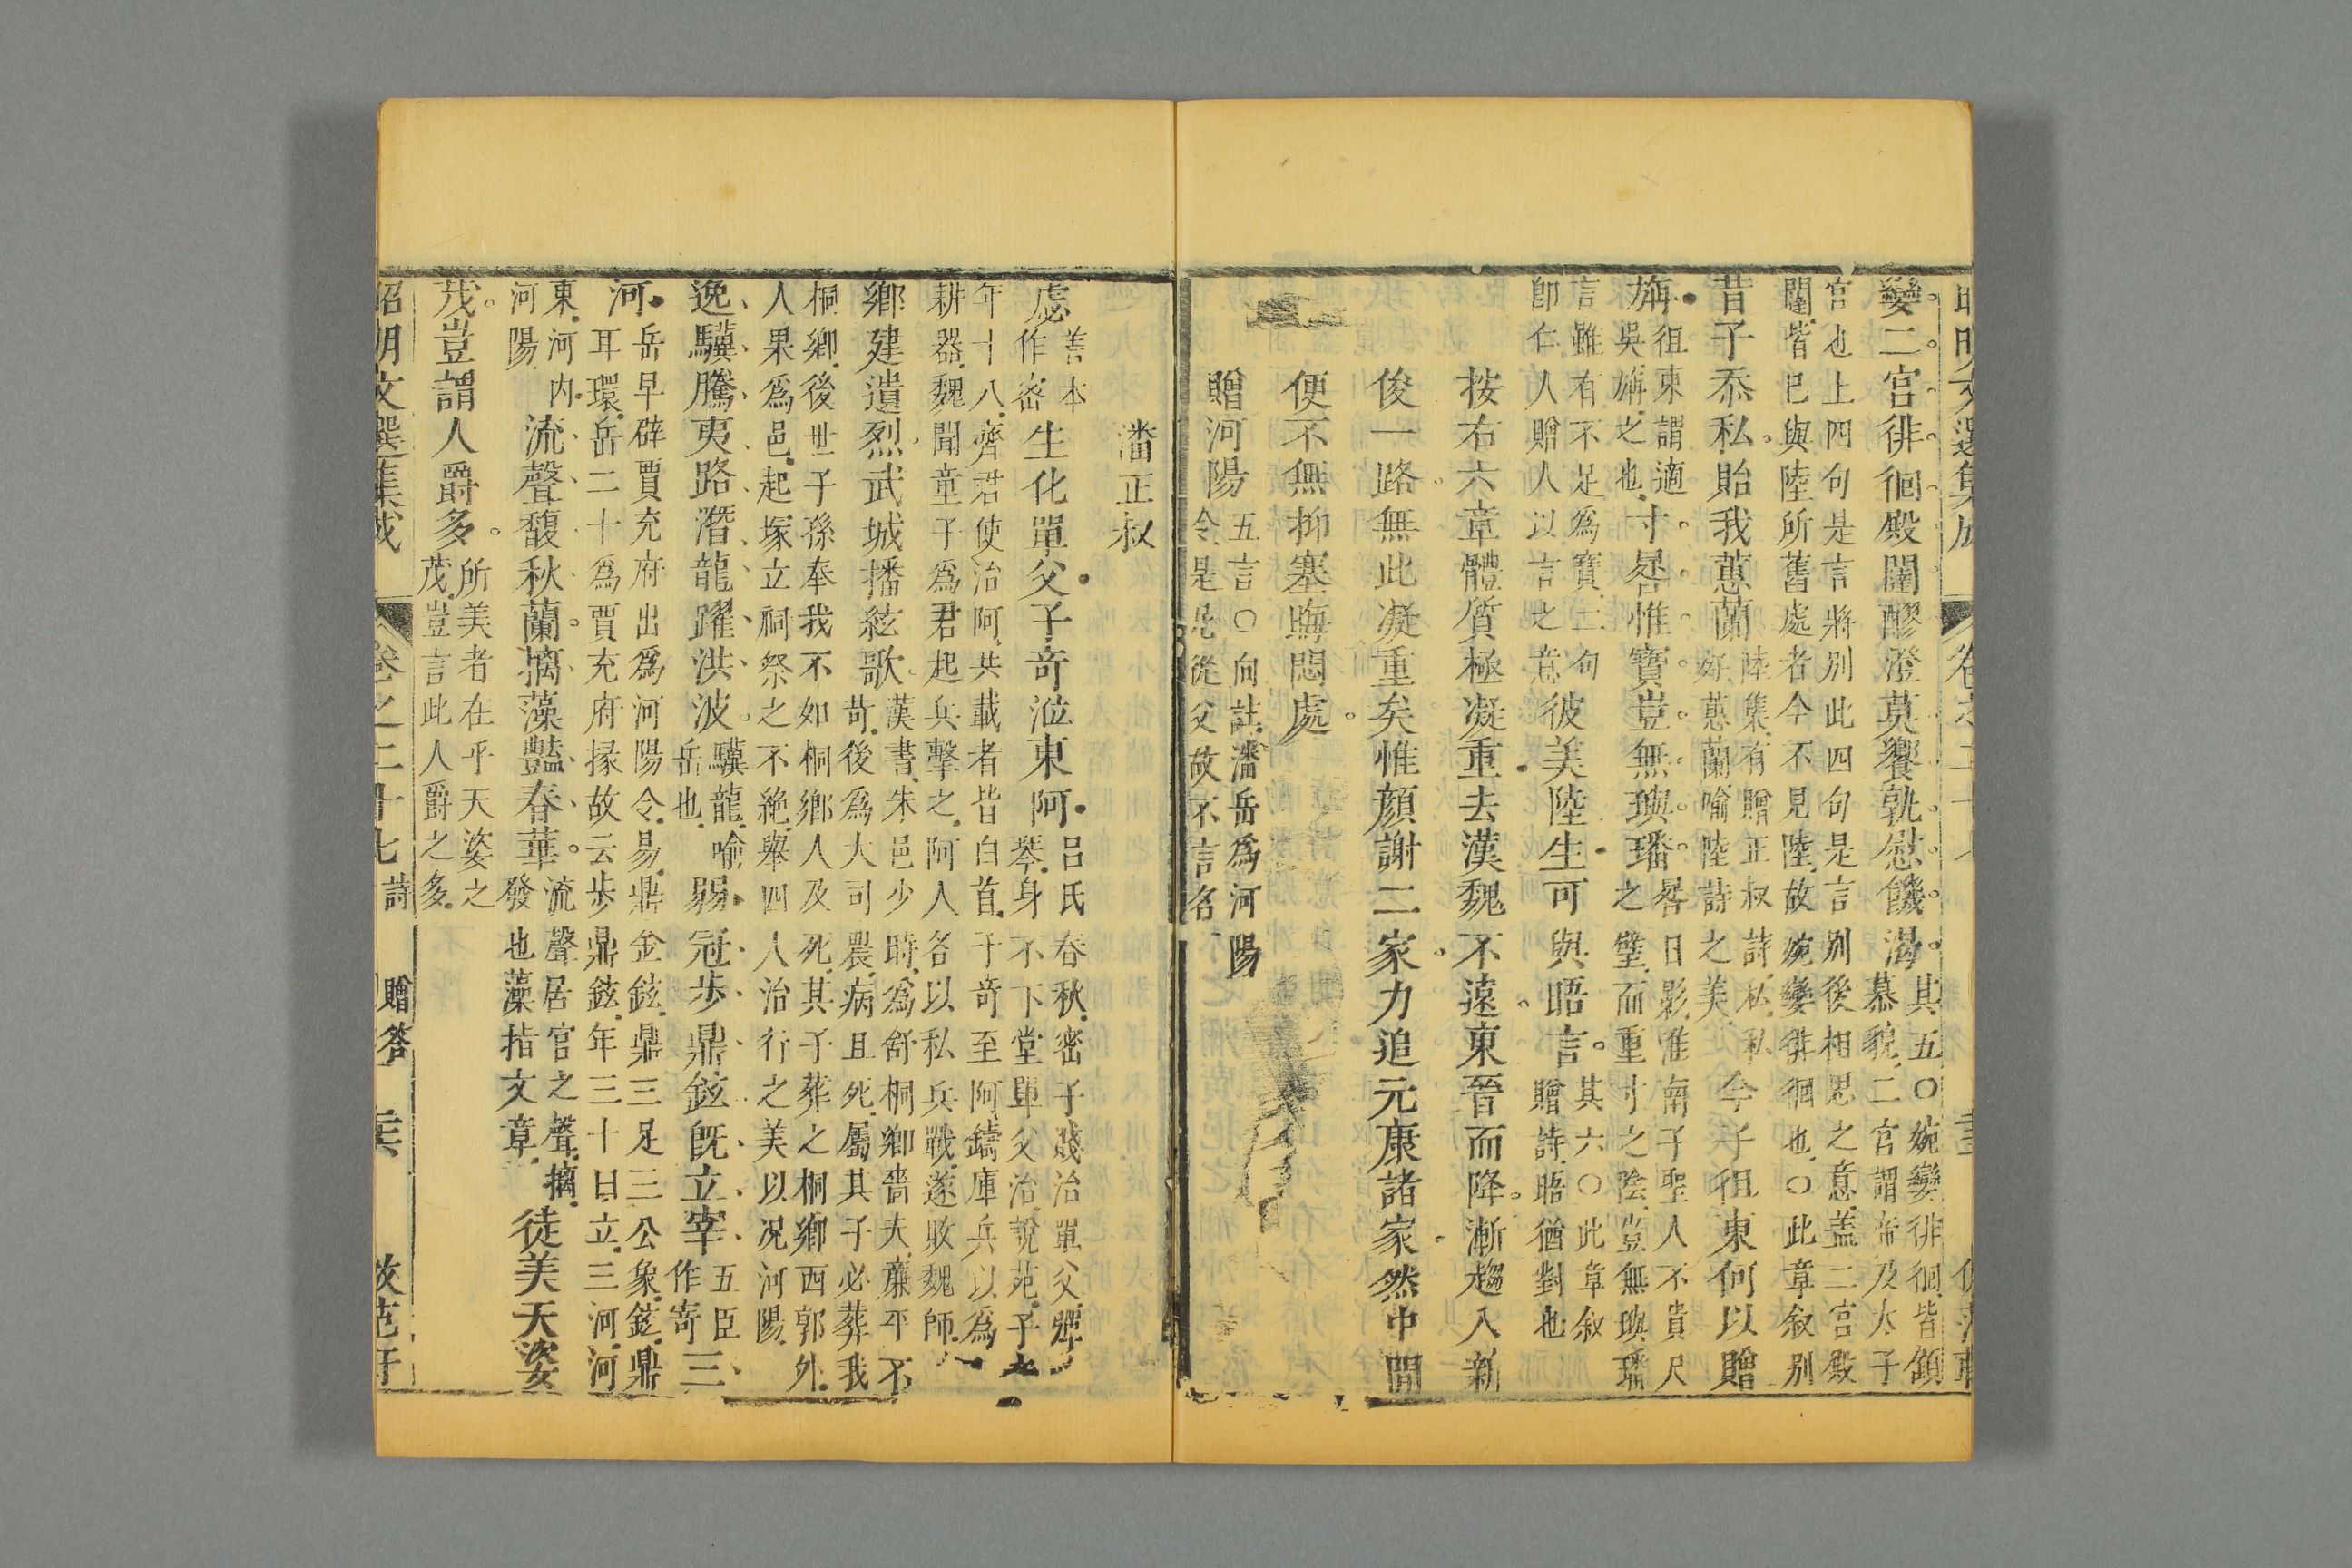 昭明文選集成
卷之二十七
孌二宮徘徊殿闥醪澄莫饗孰慰饑渴其五〇婉孌徘徊皆顧
慕貌二宮謂帝及太子
宮也上四句是言將別此四句是言別後相思之意蓋二宮殿
闥皆已與陸所舊處者今不見陸故婉孌徘徊也〇此章叙別
昔子忝私貽我蕙蘭陸集有贈正叔詩私私
好蕙蘭喻陸詩之美今子徂東何以贈
旃徂東謂適
吳旃之也寸晷惟寶豈無璵璠晷日影淮南子聖人不貴尺
之璧而重寸之陰豈無璵璠
言雖有不足爲寶二句
卽仁人贈人以言之意彼美陸生可與晤言其六〇此章叙
贈詩晤猶對也
按右六章體質極凝重去漢魏不遠東晉而降漸趨入新
俊一路無此凝重矣惟顏謝二家力追元康諸家然中間
便不無抑塞晦悶處
贈河陽五言〇向註潘岳爲河陽
令是尼從父故不言名
潘正叔
虙善本
作密生化單父子奇涖東阿呂氏春秋密子賤治單父彈
琴身不下堂單父治說苑子
年十八齊君使治阿共載者皆白首子奇至阿鑄庫兵以爲
耕器魏聞童子爲君起兵擊之阿人各以私兵戰遂敗魏師
鄉建遺烈武城播絃歌漢書朱邑少時爲舒桐鄉嗇夫廉平不
苛後爲大司農病且死屬其子必葬我
桐鄉後世子孫奉我不如桐鄉人及死其子葬之桐鄉西郭外
人果爲邑起塚立祠祭之不絶舉四人治行之美以况河陽
逸驥騰夷路潛龍躍洪波驥龍喻
岳也弱冠步鼎鉉旣立宰五臣
作寄三
河岳早辟賈充府出爲河陽令易鼎金鉉鼎三足三公象鉉鼎
耳環岳二十爲賈充府掾故云步鼎鉉年三十曰立三河河
東河内
河陽流聲馥秋蘭摛藻豔春華流聲居官之聲摛
發也藻指文章徒美天姿
茂豈謂人爵多所美者在乎天姿之
茂豈言此人爵之多
昭明文選集成
卷之二十七
詩
贈答